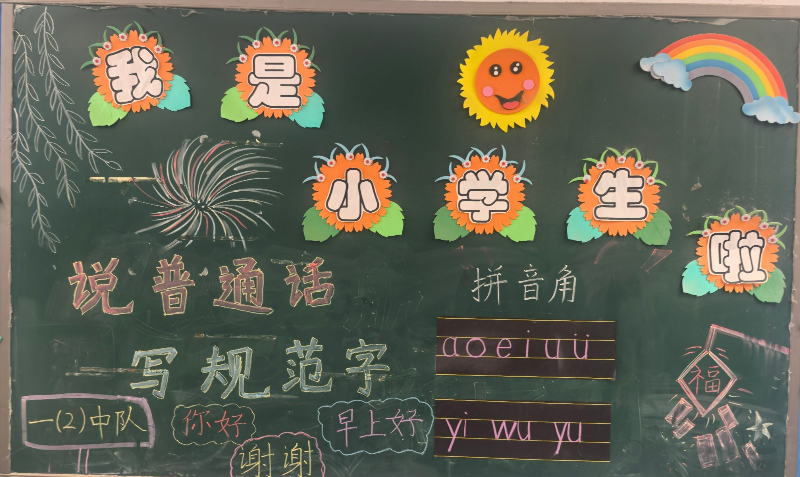 我是
小学生啦
说普通话
拼音角
写规范字
a o e i u ü
yi wu yu
一(2)中队
你好
谢谢
早上好
福